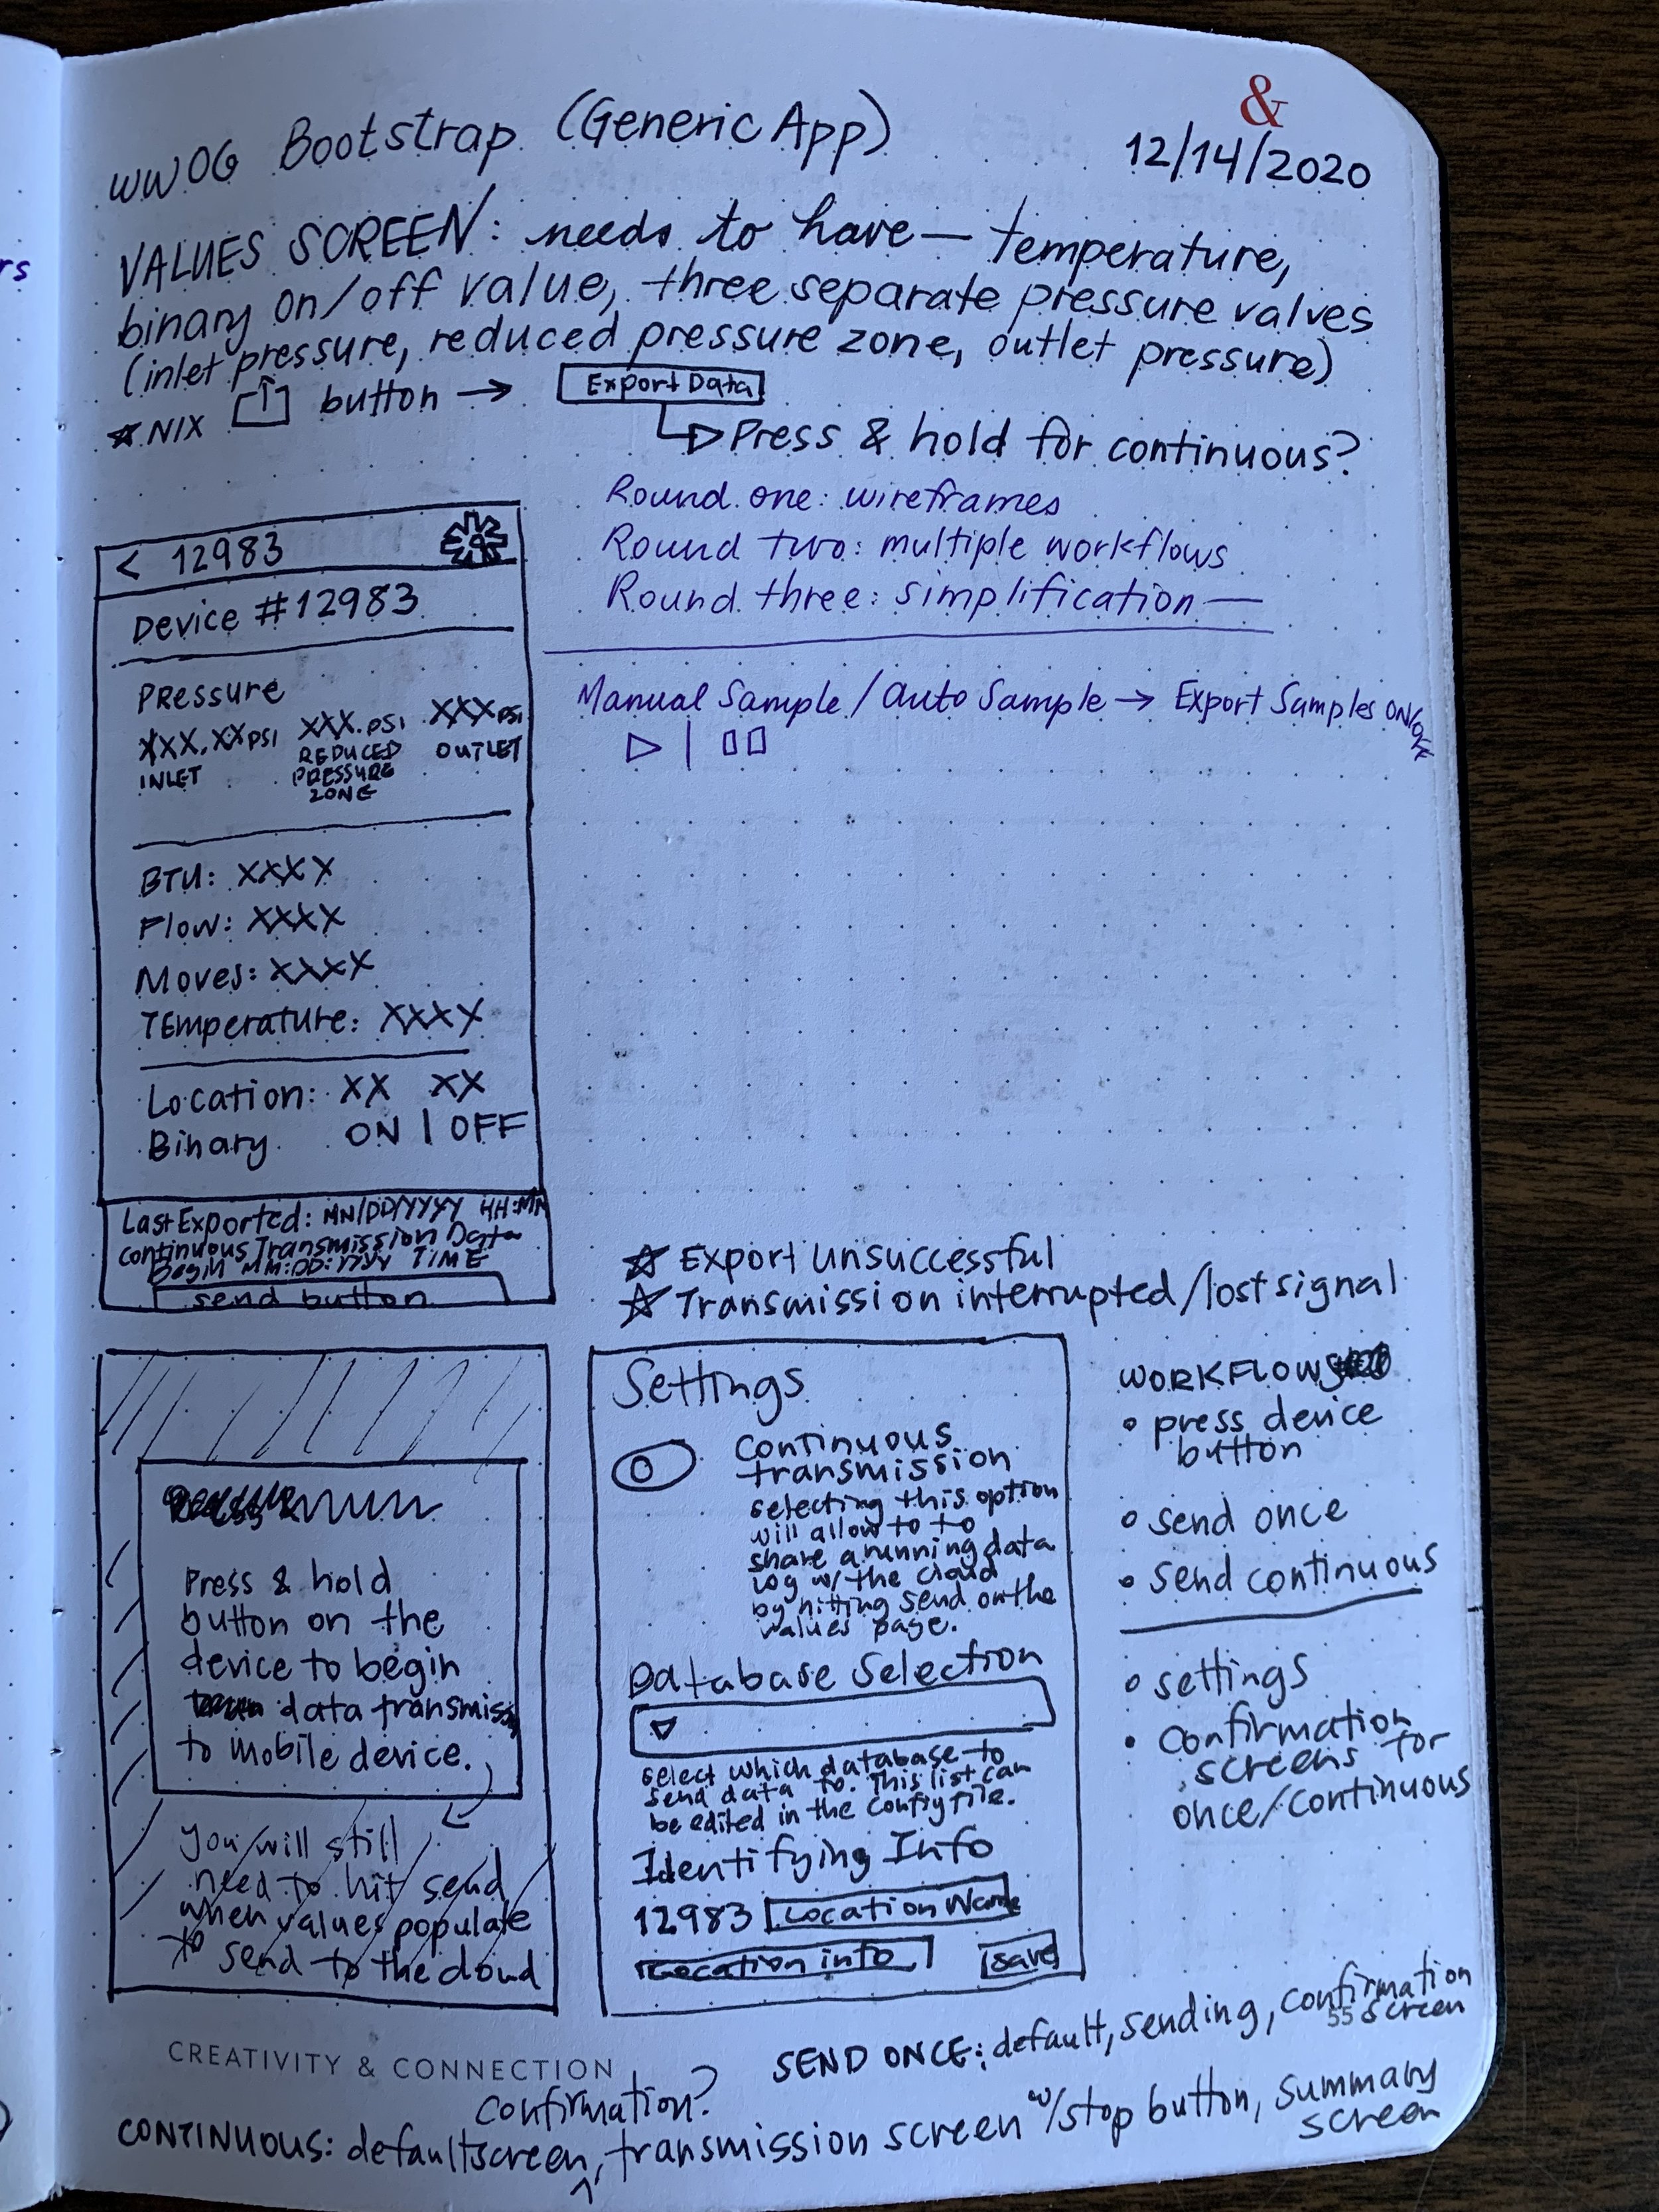 rs
&
12/14/2020
WWOG Bootstrap (Generic App)
VALUES SCREEN: needs to have — temperature,
binary on/off value, three separate pressure valves
(inlet pressure, reduced pressure zone, outlet pressure)
NIX button → Export Data
Press & hold for continuous?
Round one: wireframes
Round two: multiple workflows
Round three: simplification —
Manual Sample / Auto Sample → Export Samples ON/OFF
< 12983
Device #12983
Pressure
XXX.XX PSI XXX.PSI XXX PSI
INLET REDUCED PRESSURE ZONE OUTLET
BTU: XXXX
Flow: XXXX
Moves: XXXX
Temperature: XXXX
Location: XX XX
Binary ON | OFF
Last Exported: MN/DD/YYYY HH:MN
Continuous Transmission Data
Begin MM:DD:YYYY TIME
send button
Export Unsuccessful
Transmission interrupted/lost signal
Press & hold
button on the
device to begin
data transmiss
to mobile device.
You will still
need to hit send
when values populate
to send to the cloud
Settings
Continuous
transmission
selecting this option
will allow to to
share a running data
log w/ the cloud
by hitting send on the
values page.
Database Selection
select which database to
send data to. This list can
be edited in the config file.
Identifying Info
12983 Location Name
Location info save
WORKFLOWS
• press device
button
• send once
• send continuous
• settings
• confirmation
screens for
once/continuous
SEND ONCE: default, sending, confirmation
screen
55
CREATIVITY & CONNECTION
confirmation?
CONTINUOUS: default screen, transmission screen w/stop button, summary
screen